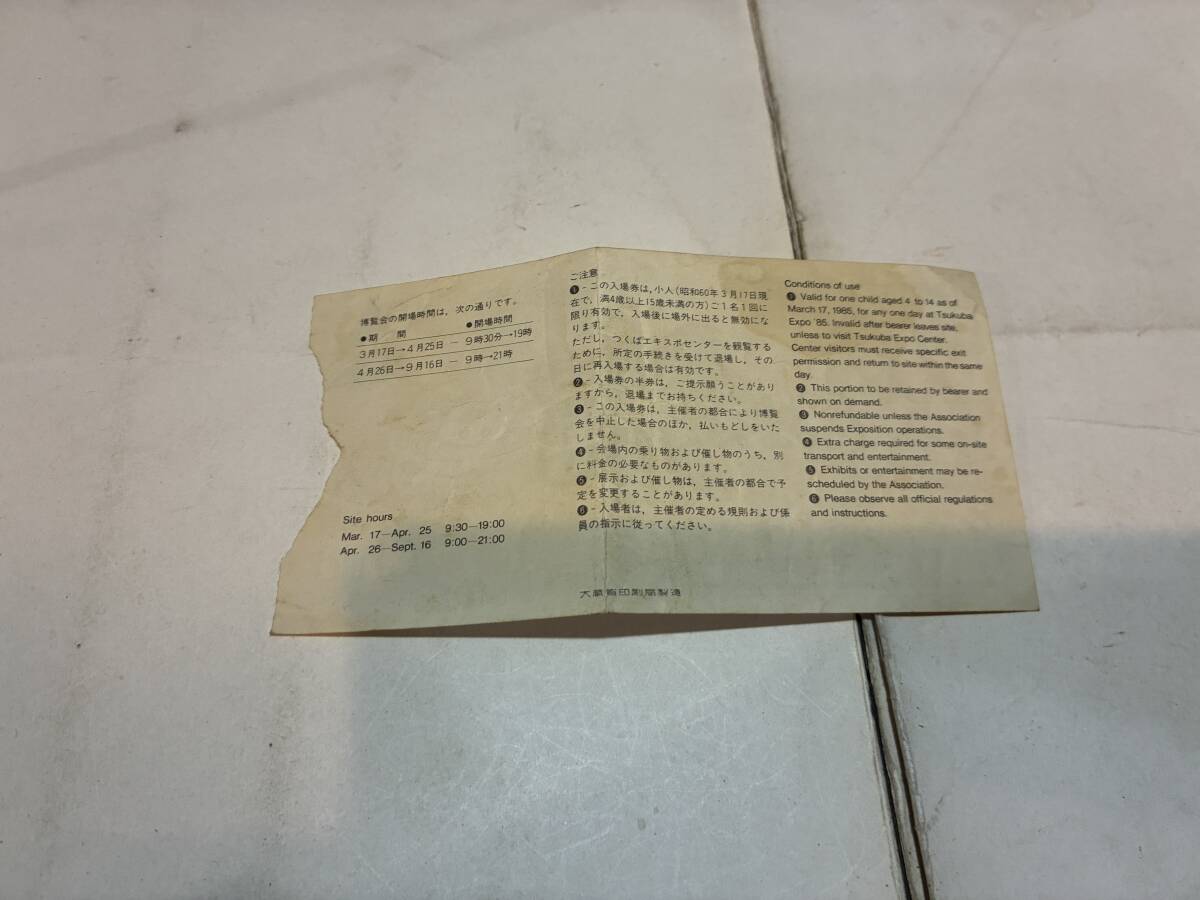 博覧会の開場時間は，次の通りです。
●期　間　●開場時間
3月17日→4月25日 — 9時30分→19時
4月26日→9月16日 — 9時→21時
Site hours
Mar. 17—Apr. 25 9:30—19:00
Apr. 26—Sept. 16 9:00—21:00
ご注意
❶-この入場券は，小人(昭和60年3月17日現
在で，満4歳以上15歳未満の方)ご1名1回に
限り有効で，入場後に場外に出ると無効にな
ります。
ただし，つくばエキスポセンターを観覧する
ために，所定の手続きを受けて退場し，その
日に再入場する場合は有効です。
❷-入場券の半券は，ご提示願うことがあり
ますから，退場までお持ちください。
❸-この入場券は，主催者の都合により博覧
会を中止した場合のほか，払いもどしをいた
しません。
❹-会場内の乗り物および催し物のうち，別
に料金の必要なものがあります。
❺-展示および催し物は，主催者の都合で予
定を変更することがあります。
❻-入場者は，主催者の定める規則および係
員の指示に従ってください。
大蔵省印刷局製造
Conditions of use
❶ Valid for one child aged 4 to 14 as of
March 17, 1985, for any one day at Tsukuba
Expo '85. Invalid after bearer leaves site,
unless to visit Tsukuba Expo Center.
Center visitors must receive specific exit
permission and return to site within the same
day.
❷ This portion to be retained by bearer and
shown on demand.
❸ Nonrefundable unless the Association
suspends Exposition operations.
❹ Extra charge required for some on-site
transport and entertainment.
❺ Exhibits or entertainment may be re-
scheduled by the Association.
❻ Please observe all official regulations
and instructions.